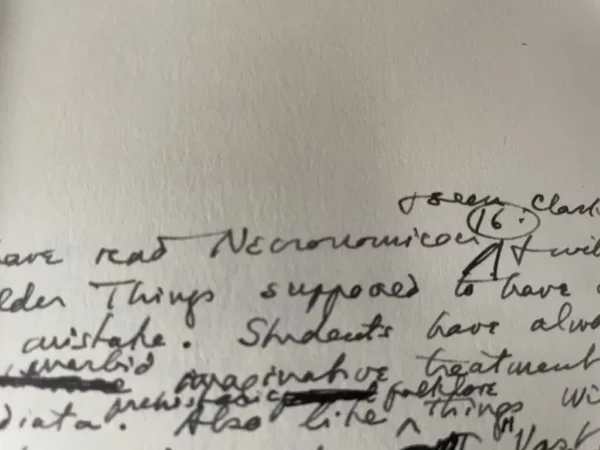 & seen Clark
16.
have read Necronomicon & will
Elder Things supposed to have
mistake. Students have alwa
morbid imaginative treatment
prehistoric folklore
diata. Also like Things wi
Vast